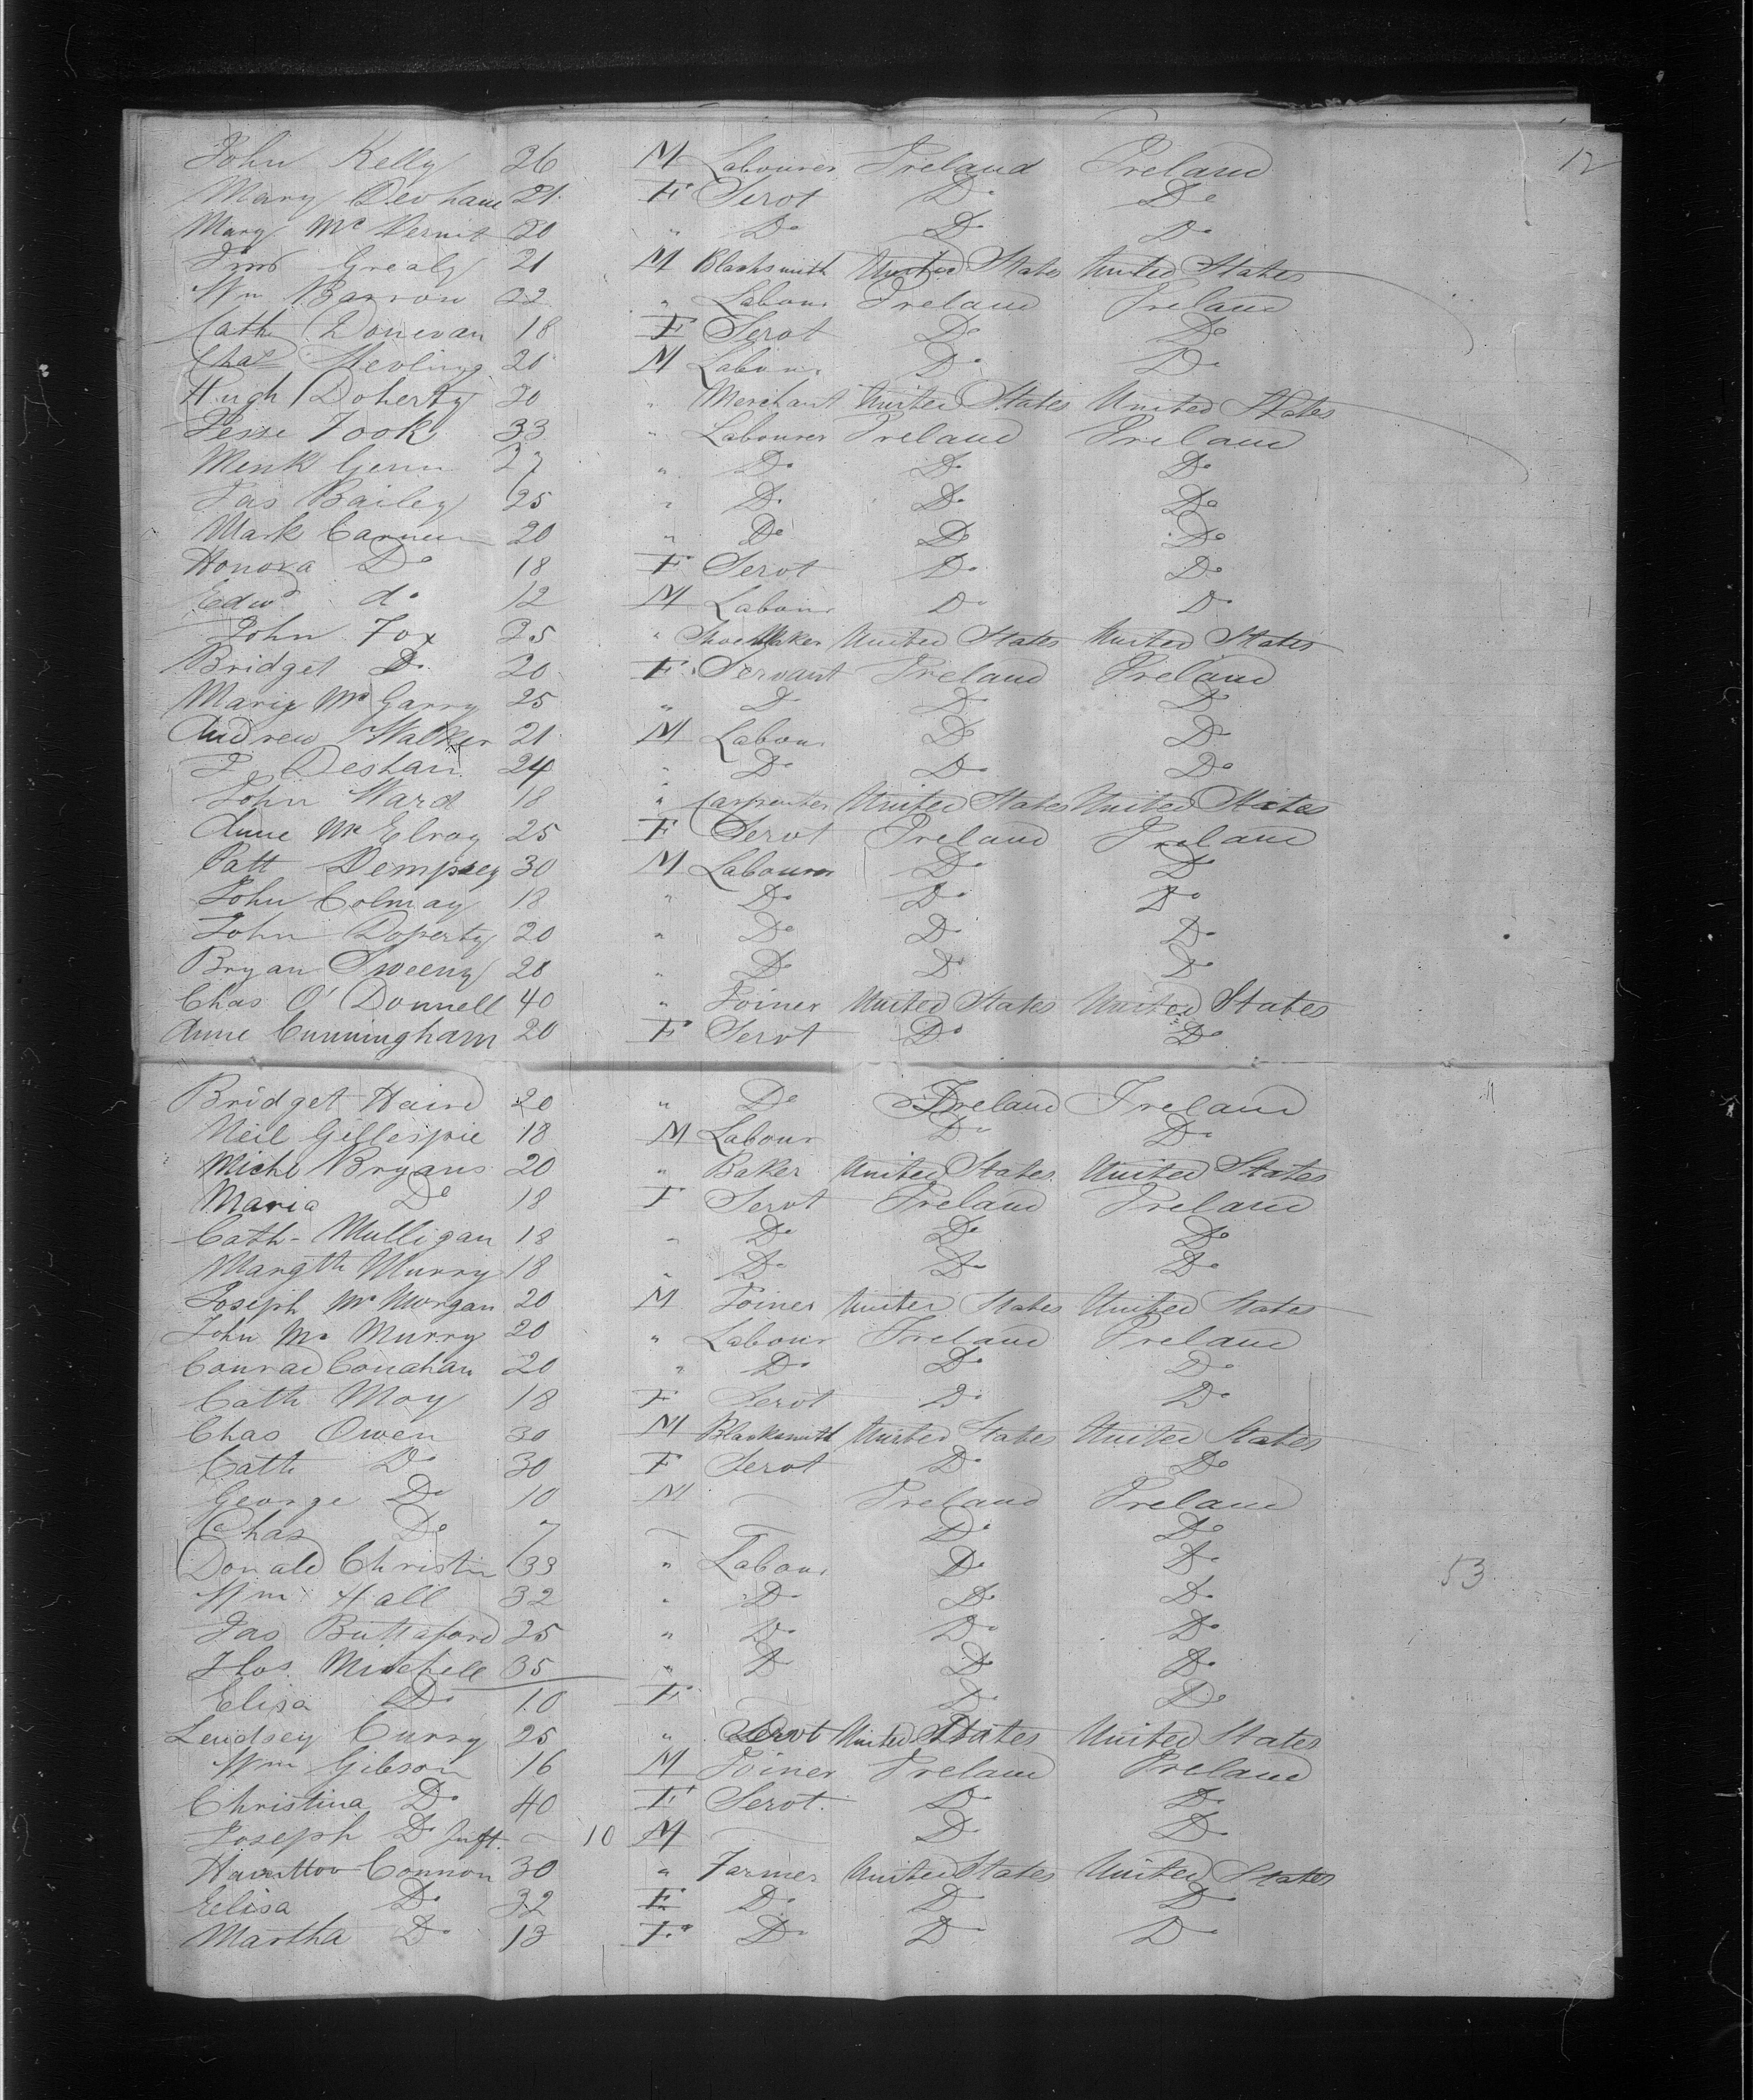 12
John Kelly 26 M Labourer Ireland Ireland
Mary Devhane 21 F Servt Do Do
Mary Mc Dermit 20 " Do Do Do
Grealy 21 M Blacksmith United States United States
Wm Barron 22 " Labour Ireland Ireland
Cath Donevan 18 F Servt Do Do
Chas 20 M Labour Do Do
Hugh Doherty 20 " Merchant United States United States
Jesse Took 33 " Labourer Ireland Ireland
27 " Do Do Do
Jas Bailey 25 " Do Do Do
Mark 20 " Do Do Do
Honora Do 18 F Servt Do Do
Edwd do 12 M Labour Do Do
John Fox 25 " Shoe Maker United States United States
Bridget Do 20 F Servant Ireland Ireland
Mc Garry 25 " Do Do Do
Andrew Walker 21 M Labour Do Do
24 " Do Do Do
John Ward 18 " Carpenter United States United States
Anne Mc Elroy 25 F Servt Ireland Ireland
Patt Dempsey 30 M Labourer Do Do
John Colmay 18 " Do Do Do
John Doherty 20 " Do Do Do
Bryan Sweeny 20 " Do Do Do
Chas O'Donnell 40 " Joiner United States United States
Anne Cunningham 20 F Servt Do Do
Bridget Haird 20 " Do Ireland Ireland
Neil Gillespie 18 M Labour Do Do
Michl Bryans 20 " Baker United States United States
Maria Do 18 F Servt Ireland Ireland
Cath Mulligan 18 " Do Do Do
Margth Murry 18 " Do Do Do
Joseph Mc Murgan 20 M Joiner United States United States
John Mc Murry 20 " Labour Ireland Ireland
Conrad Conahan 20 " Do Do Do
Cath Moy 18 F Servt Do Do
Chas Owen 30 M Blacksmith United States United States
Cath Do 30 F Servt Do Do
George Do 10 M Ireland Ireland
Chas Do 7 Do Do
Donald Christin 33 " Labour Do Do
53
Wm Hall 32 " Do Do Do
Jas Buttaford 25 " Do Do Do
Thos Mitchell 35 " Do Do Do
Elisa Do 10 F Do Do
Lendsey Curry 25 " Servt United States United States
Wm Gibson 16 M Joiner Ireland Ireland
Christina Do 40 F Servt Do Do
Joseph Do Inft 10 M Do Do
Hamilton Connon 30 " Farmer United States United States
Elisa Do 32 F Do Do Do
Martha Do 13 F Do Do Do